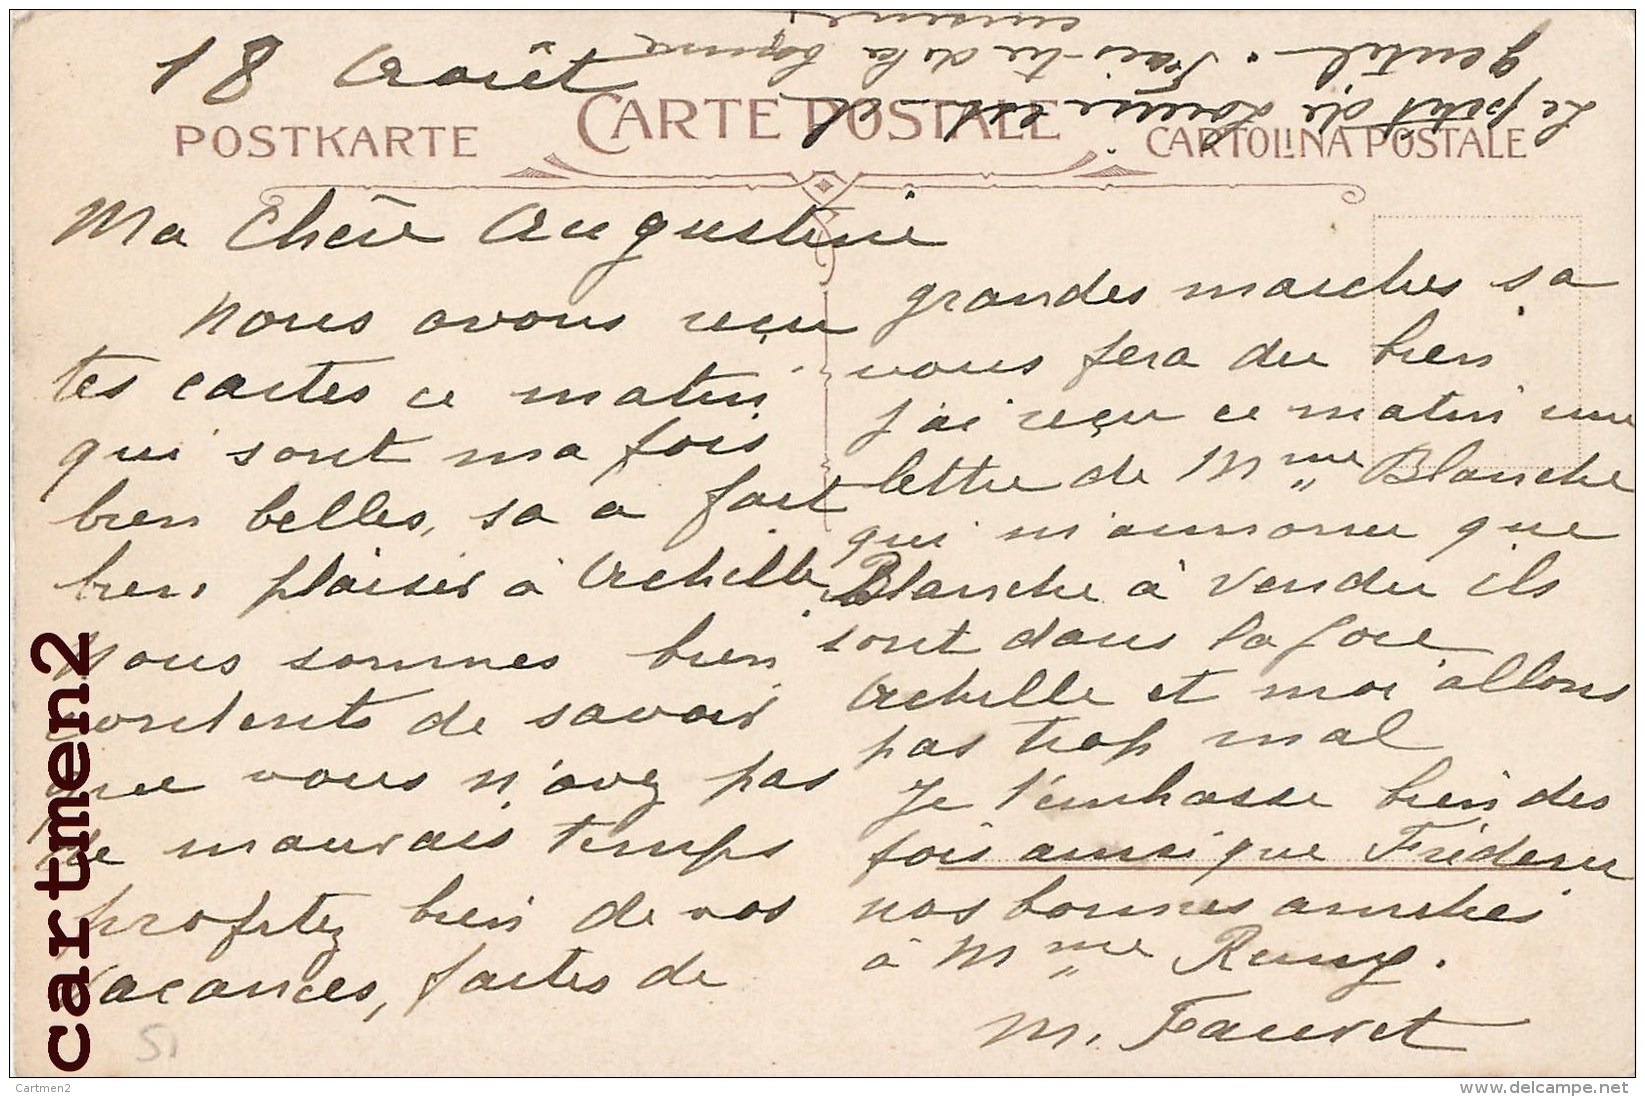 18 Août
POSTKARTE
CARTE POSTALE
CARTOLINA POSTALE
Ma Chère Augustine
Nous avons reçu
tes cartes ce matin
qui sont ma fois
bien belles, sa a fait
bien plaisir à Achille
Nous sommes bien
contents de savoir
que vous n'avez pas
de mauvais temps
profitez bien de vos
vacances, faites de
grandes marches sa
vous fera du bien
j'ai reçu ce matin une
lettre de Mme Blanche
qui m'annonce que
Blanche à vendu ils
sont dans la joie
Achille et moi allons
pas trop mal
Je t'embasse bien des
fois ainsi que
nos bonnes amitiés
à Mme Remy.
M. Fauvet
Le petit de Louise est
gentil. Fais-tu de la bonne
cuisine
51
cartmen2
Cartmen2
www.delcampe.net